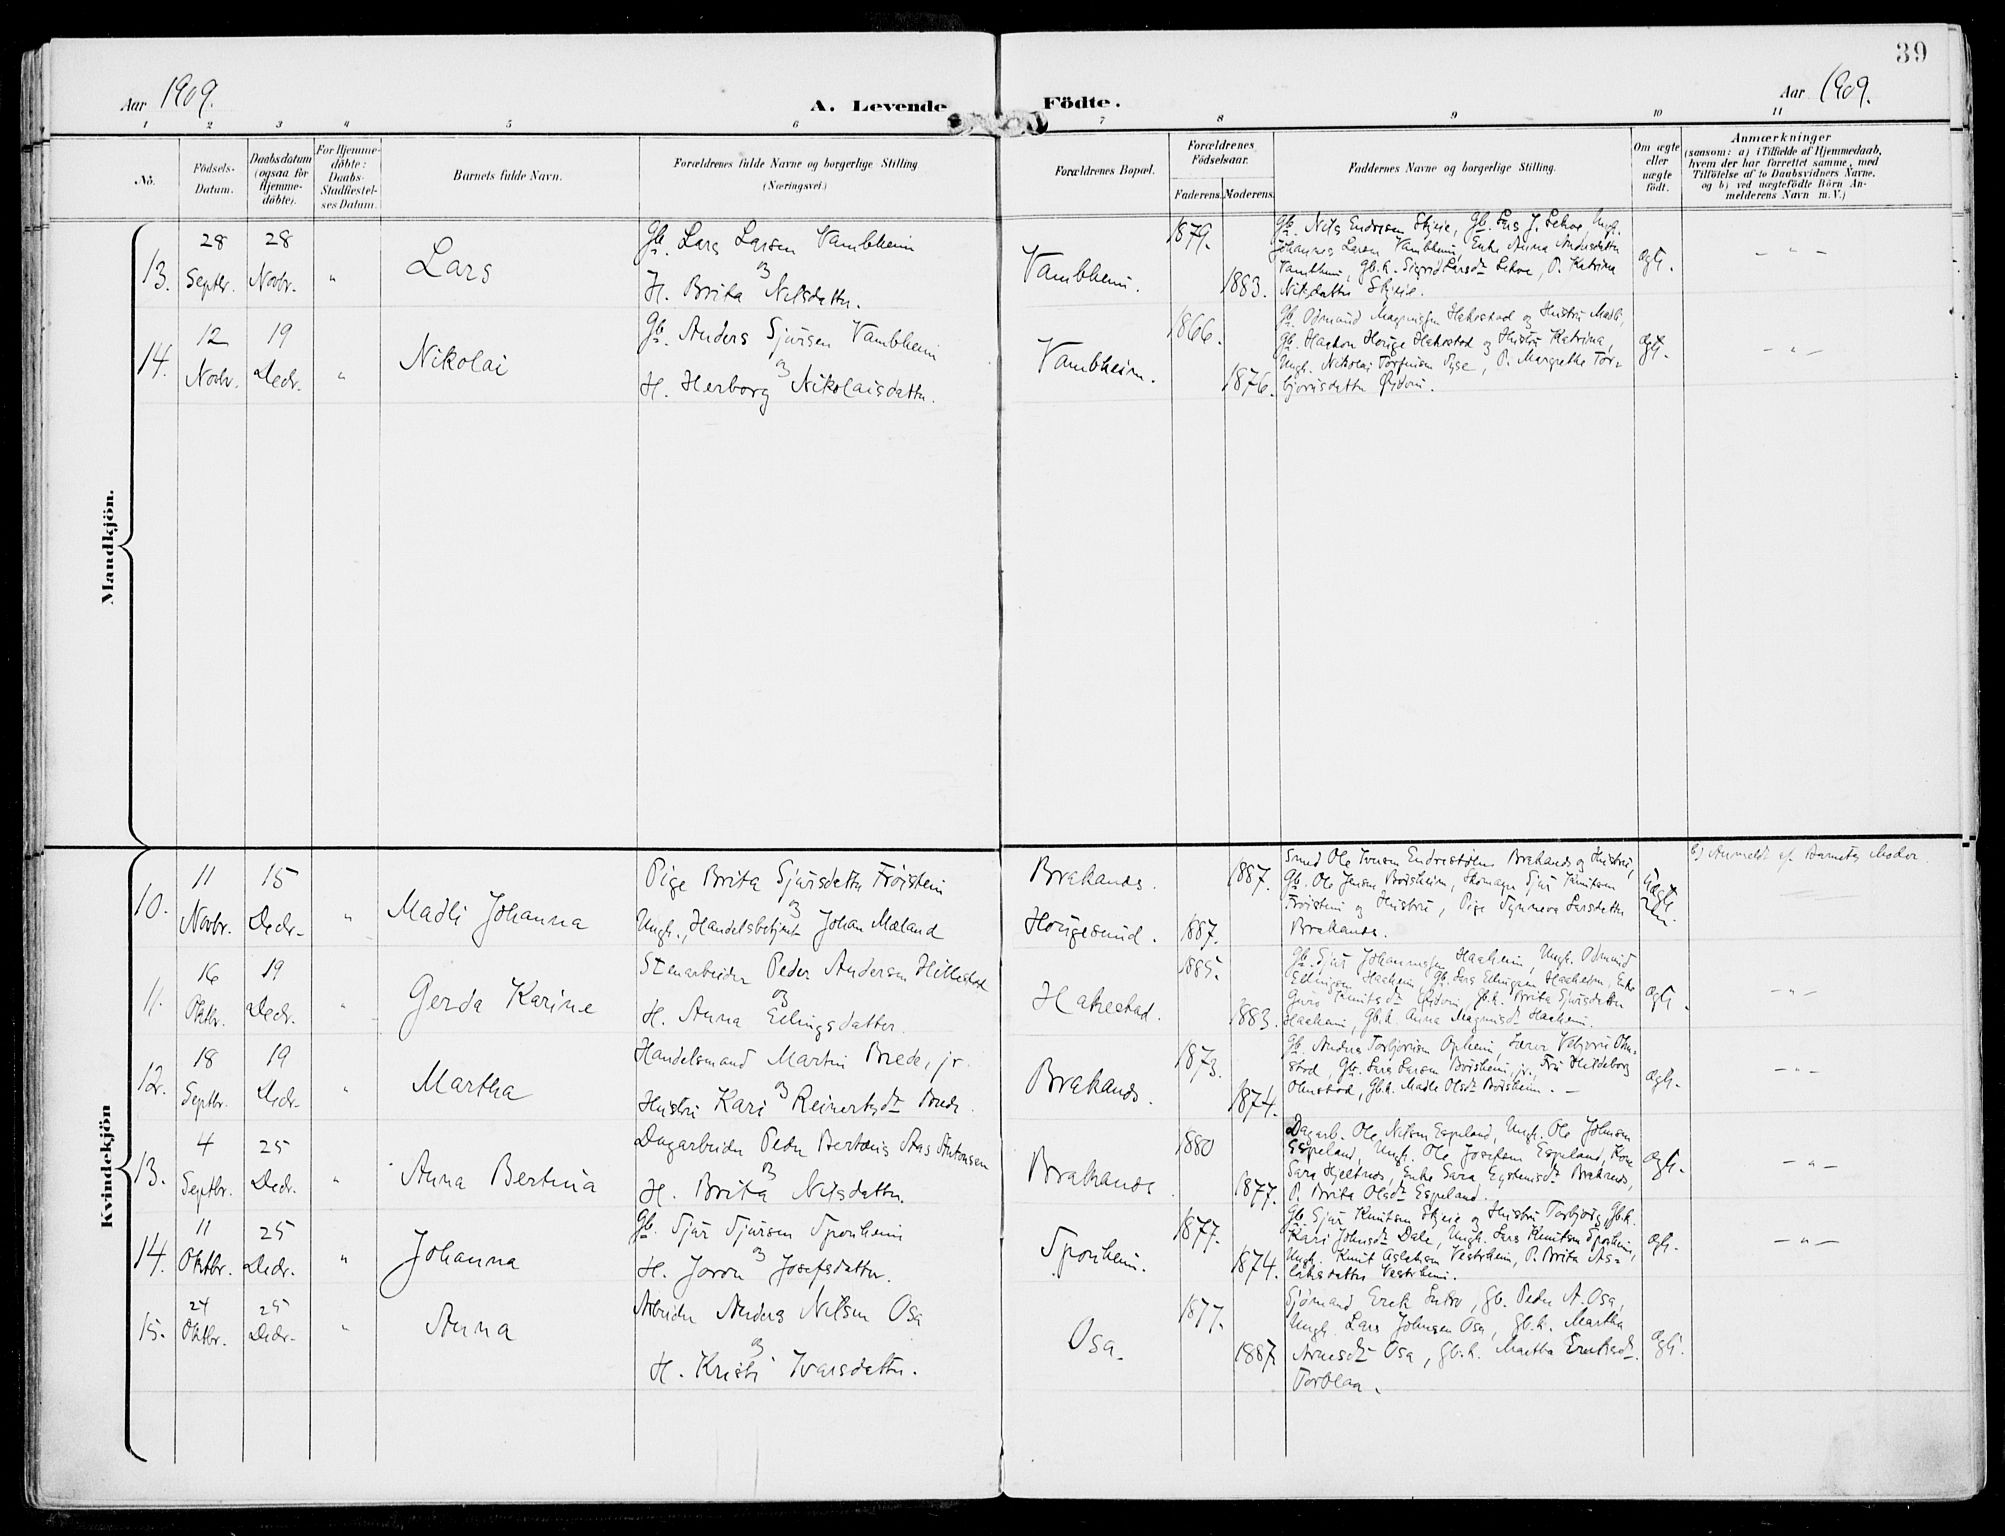 39
Aar 1909.
A. Levende Födte.
Aar 1909.
1 2 3 4 5 6 7 8 9 10 11
No.
Födsels-Datum.
Daabsdatum (ogsaa for Hjemme-döbte).
For Hjemme-döbte: Daabs-Stadfæstel-ses Datum.
Barnets fulde Navn.
Forældrenes fulde Navne og borgerlige Stilling
(Næringsvei.)
Forældrenes Bopæl.
Forældrenes Födselsaar.
Faderens. Moderens.
Faddernes Navne og borgerlige Stilling.
Om ægte eller uægte födt.
Anmærkninger
(saasom: a) i Tilfælde af Hjemmedaab, hvem der har forrettet samme, med Tilföielse af to Daabsvidners Navne, og b) ved uægtefödte Börn An-melderens Navn m. V.)
Mandkjön.
13. 28 Septbr. 28 Novbr. " Lars
Gb. Lars Larsen Vambheim
og
H. Brita Nilsdatter.
Vambheim. 1879. 1883.
Gb. Nils Endresen Skjeie, Gb. Lars J. Sekse, Ungk.
Johannes Larsen Vambheim, Enke Anna Andersdatter
Vambheim, Gb.k. Sigrid Larsdtr Sekse, P. Katrina
Nilsdatter Skjeie.
ægte. - " -
14. 12 Novbr. 19 Decbr. " Nikolai
Gb. Anders Sjursen Vambheim
og
H. Herborg Nikolaisdatter.
Vambheim. 1866. 1876.
Gb. Odmund Magnussen Hakestad og Hustru Madli,
Gb. Haakon Horge Hakestad og Hustru Katrina,
Ungk. Nikolai Torfinsen Tyse, P. Margrethe Tor-
bjørnsdatter Øydvin.
ægte. - " -
Kvindekjön
10. 11 Novbr. 15 Decbr. " Madli Johanna
Pige Brita Sjursdatter Frøistein
og
Ungk., Handelsbetjent Johan Mæland
Brakanes. Hougesund. 1887. 1887.
Smed Ole Ivarsen Endrestølen Brakanes og Hustru,
Gb. Ole Jensen Børsheim, Skomager Sjur Knutsen
Frøistein og Hustru, Pige Synneva Larsdatter
Brakanes.
Uægte
b) Anmeldt af Barnets Moder.
11. 16 Oktbr. 19 Decbr. " Gerda Karine
Stenarbeider Peder Andersen Hillestad
og
H. Anna Ellingsdatter.
Hakestad. 1885. 1883.
Gb. Sjur Johannessen Haaheim, Ungk. Odmund
Ellingsen Haaheim, Gb. Lars Ellingsen Haaheim, Enke
Guro Knutsdtr Øydvin, Gb.k. Brita Sjursdatter
Haaheim, Gb.k. Anna Magnusdtr Haaheim.
ægte. - " -
12. 18 Septbr. 19 Decbr. " Martha
Handelsmand Martin Brede, jr.
og
Hustru Kari Reinertsdtr Brede.
Brakanes. 1873. 1874.
Gb. Anders Torbjørnsen Opheim, Lærer Vebjørn Olm-
stad, Gb. Lars Larsen Børsheim, jr., Fru Hildeborg
Olmstad, Gb.k. Madli Olsdtr Børsheim. -
ægte. - " -
13. 4 Septbr. 25 Decbr. " Anna Bertina
Dagarbeider Peder Bertinius Aas Antonsen
og
H. Brita Nilsdatter.
Brakanes 1880 1877.
Dagarb. Ole Nilsen Espeland, Ungk. Ole Johnsen
Espeland, Ungk. Ole Josefsen Espeland, Kone
Sara Hjeltnes, Enke Sara Eystensdtr Brakanes,
P. Brita Olsdtr Espeland.
ægte. - " -
14. 11 Oktbr. 25 Decbr. " Johanna
Gb. Sjur Sjursen Sponheim
og
H. Joron Josefsdatter.
Sponheim. 1877. 1874.
Gb. Sjur Knutsen Skjeie og Hustru Torbjørg, Gb.k.
Kari Johnsdtr Dale, Ungk. Lars Knutsen Sponheim,
Ungk. Knut Aslaksen Vestrheim, P. Brita As-
laksdatter Vestrheim.
ægte. - " -
15. 24 Oktbr. 25 Decbr. " Anna
Arbeider Anders Nilsen Osa
og
H. Kristi Ivarsdatter.
Osa. 1877. 1887.
Sjømand Erik, Gb. Peder A. Osa,
Ungk. Lars Johnsen Osa, Gb.k. Martha
Arnesdtr Osa, Gb.k. Martha Eriksdtr
Torblaa.
ægte.